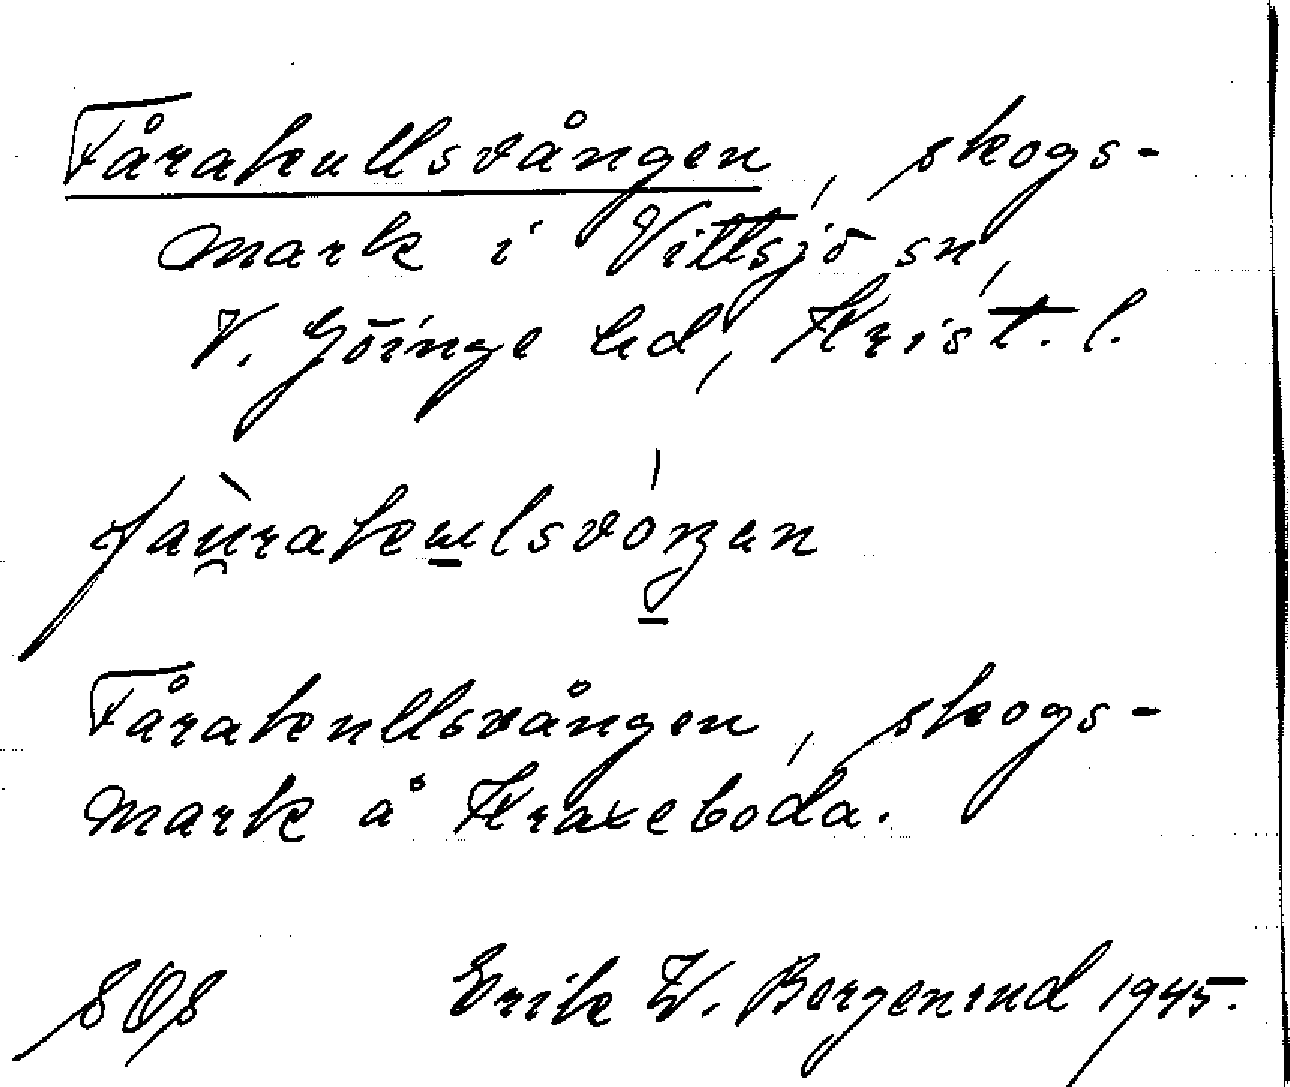 Fårakullsvången, skogs-
mark i Vittsjö sn,
V. Göinge hd, Krist. l.
Fårakullsvången, skogs-
mark å Kraxeboda.
SOS Erik W. Bergenrud 1945.